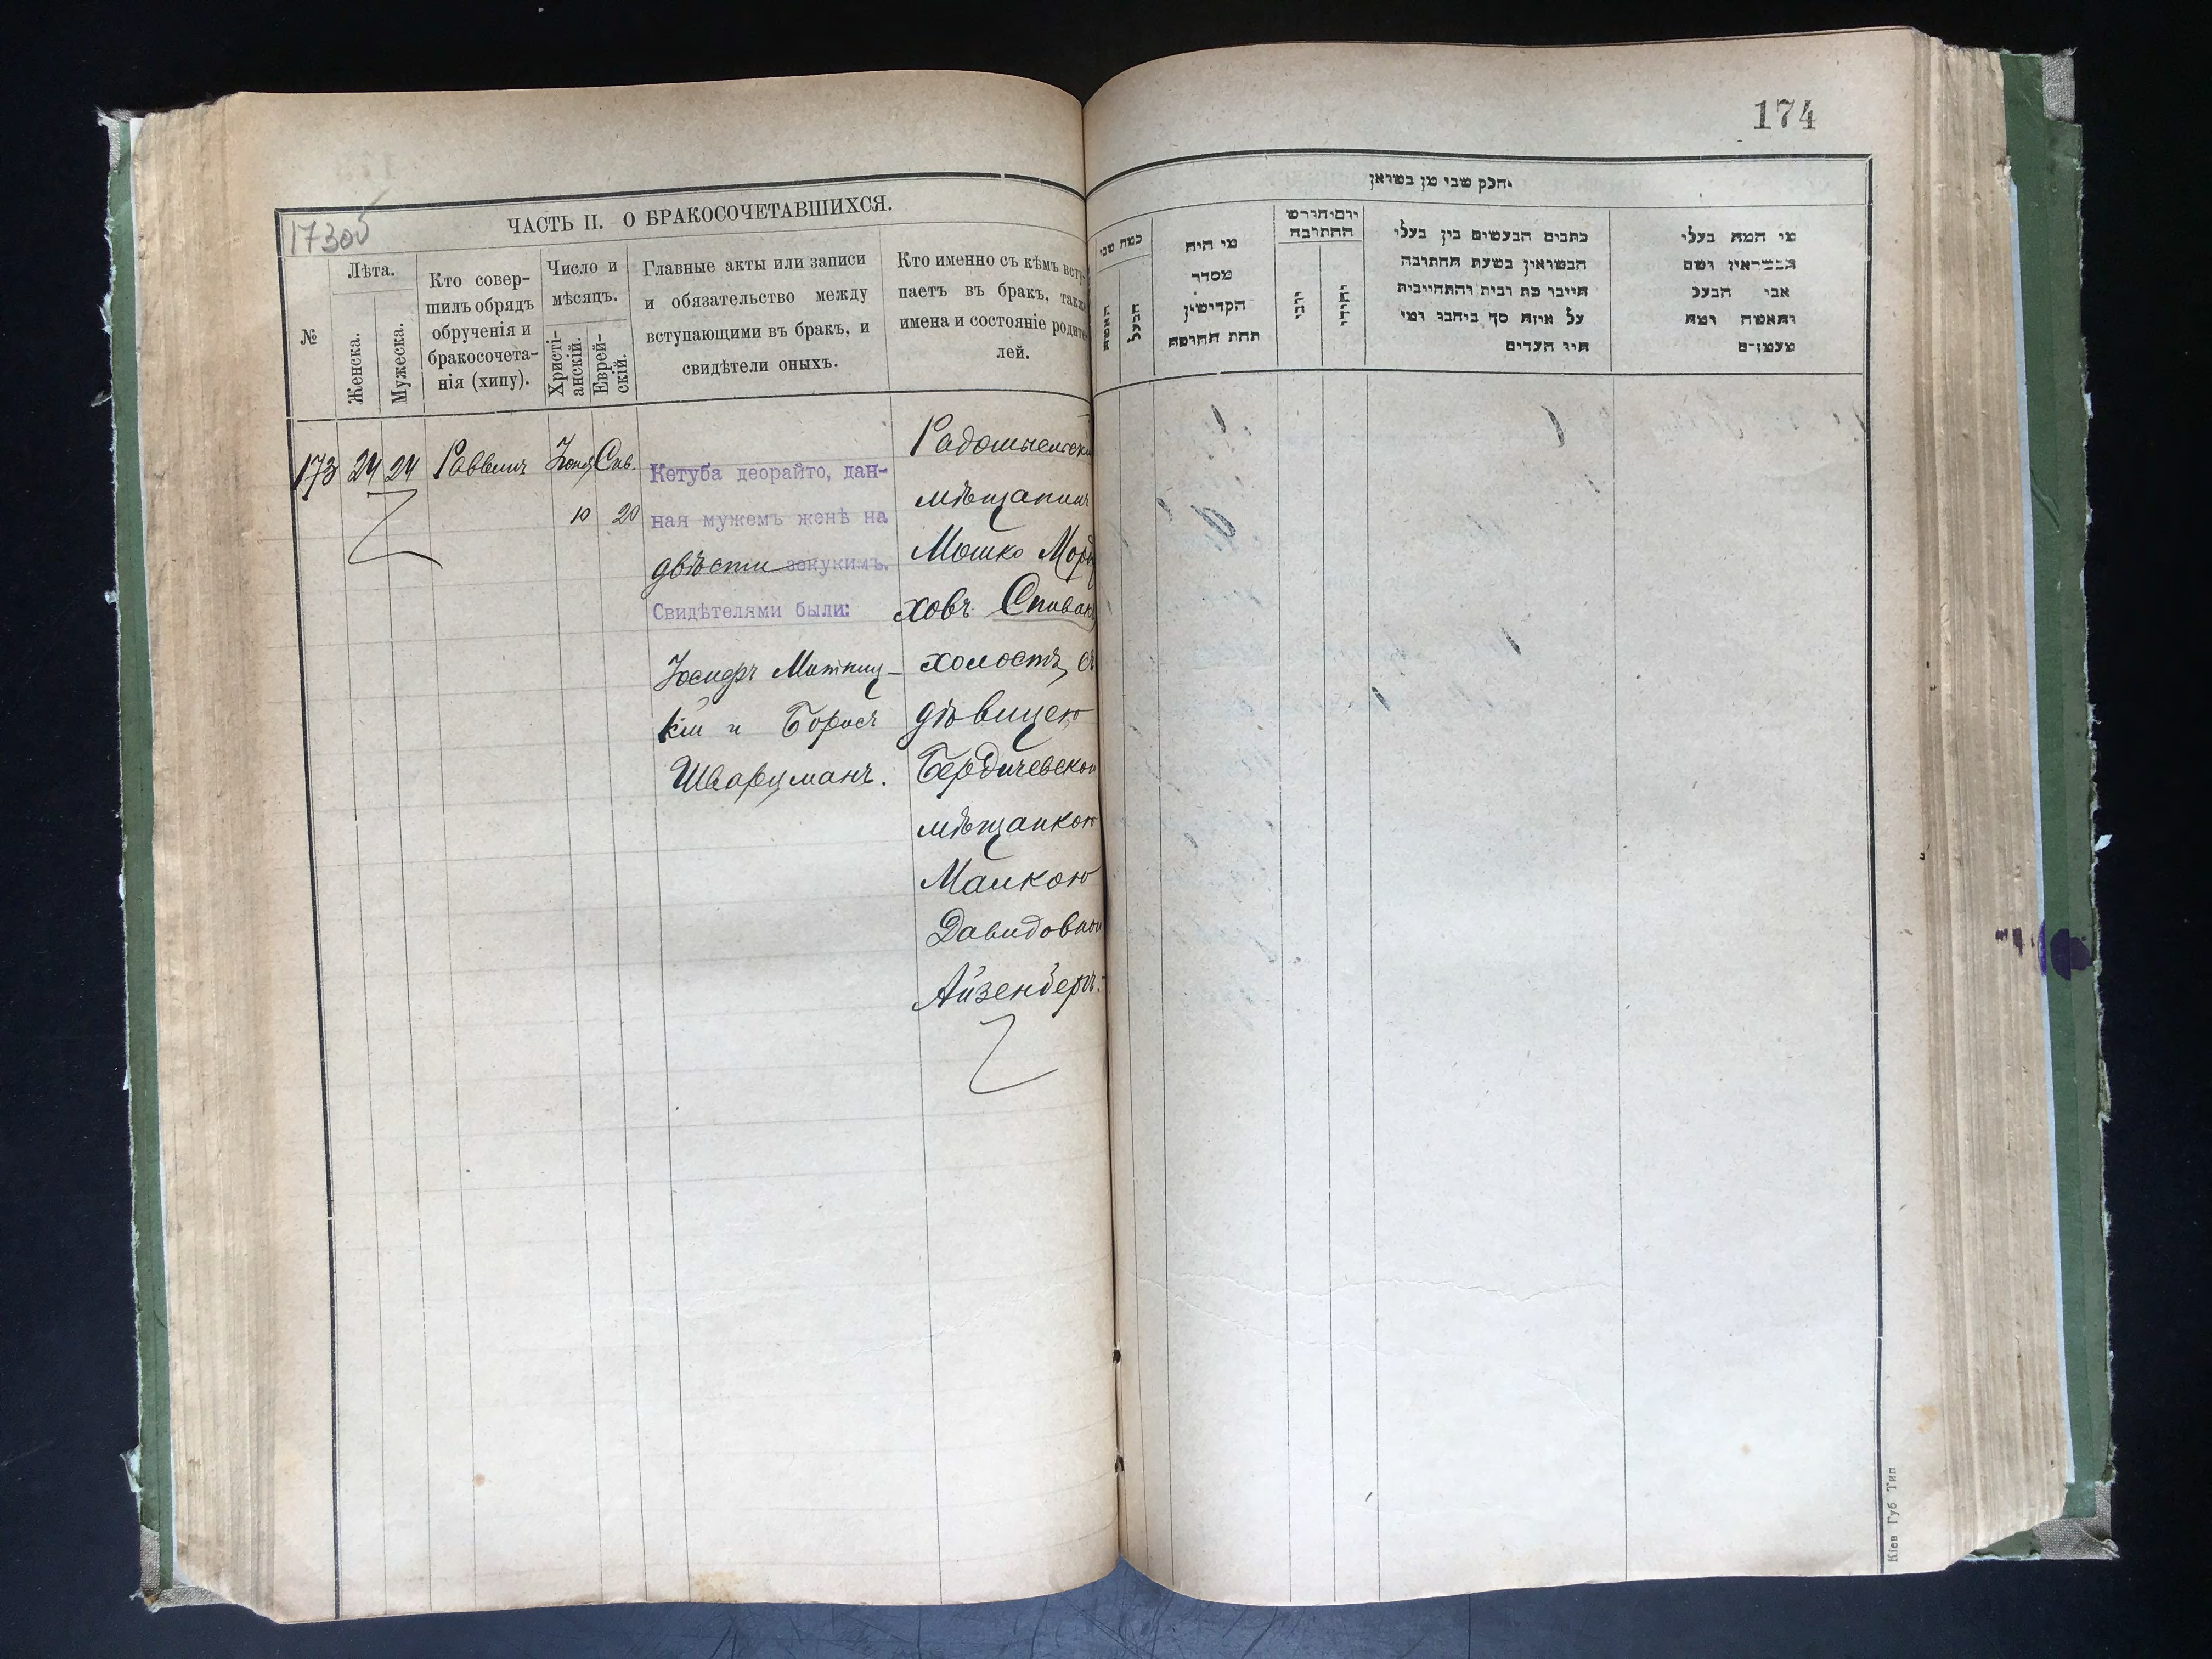 174
173об
ЧАСТЬ II. О БРАКОСОЧЕТАВШИХСЯ.
№
Лѣта.
Женска.
Мужеска.
Кто совер-
шилъ обрядъ
обрученія и
бракосочета-
нія (хипу).
Число и
мѣсяцъ.
Христі-
анскій.
Еврей-
скій.
Главные акты или записи
и обязательство между
вступающими въ бракъ, и
свидѣтели оныхъ.
Кто именно съ кѣмъ всту-
паетъ въ бракъ, также
имена и состояніе родите-
лей.
173 24 24 Раввинъ Іюня Сив.
10 20
Кетуба деорайто, дан-
ная мужемъ женѣ на
двѣсти зекукимъ.
Свидѣтелями были:
Іосифъ Митниц-
кій и Борисъ
Шварцманъ.
Радомысльскій
мѣщанинъ
Мошко Морд
ховъ Спивакъ
холостъ, съ
дѣвицею
Бердичевскою
мѣщанкою
Малкою
Давидовною
Айзенбергъ.
חלק שני מן נשואין
כמה שני
האשה
הבעל
מי היה
מסדר
הקדישין
תחת החופה
יום וחודש
החתונה
נוצרי
יהודי
כתבים הנעשים בין בעלי
הנשואין בשעת החתונה
חייבו כת ובית והתחייבות
על איזה סך ביחבו ומי
היו העדים
מי המה בעלי
הנשואין ושם
אבי הבעל
והאשה ומה
מעמדם
Кіев Губ Тип